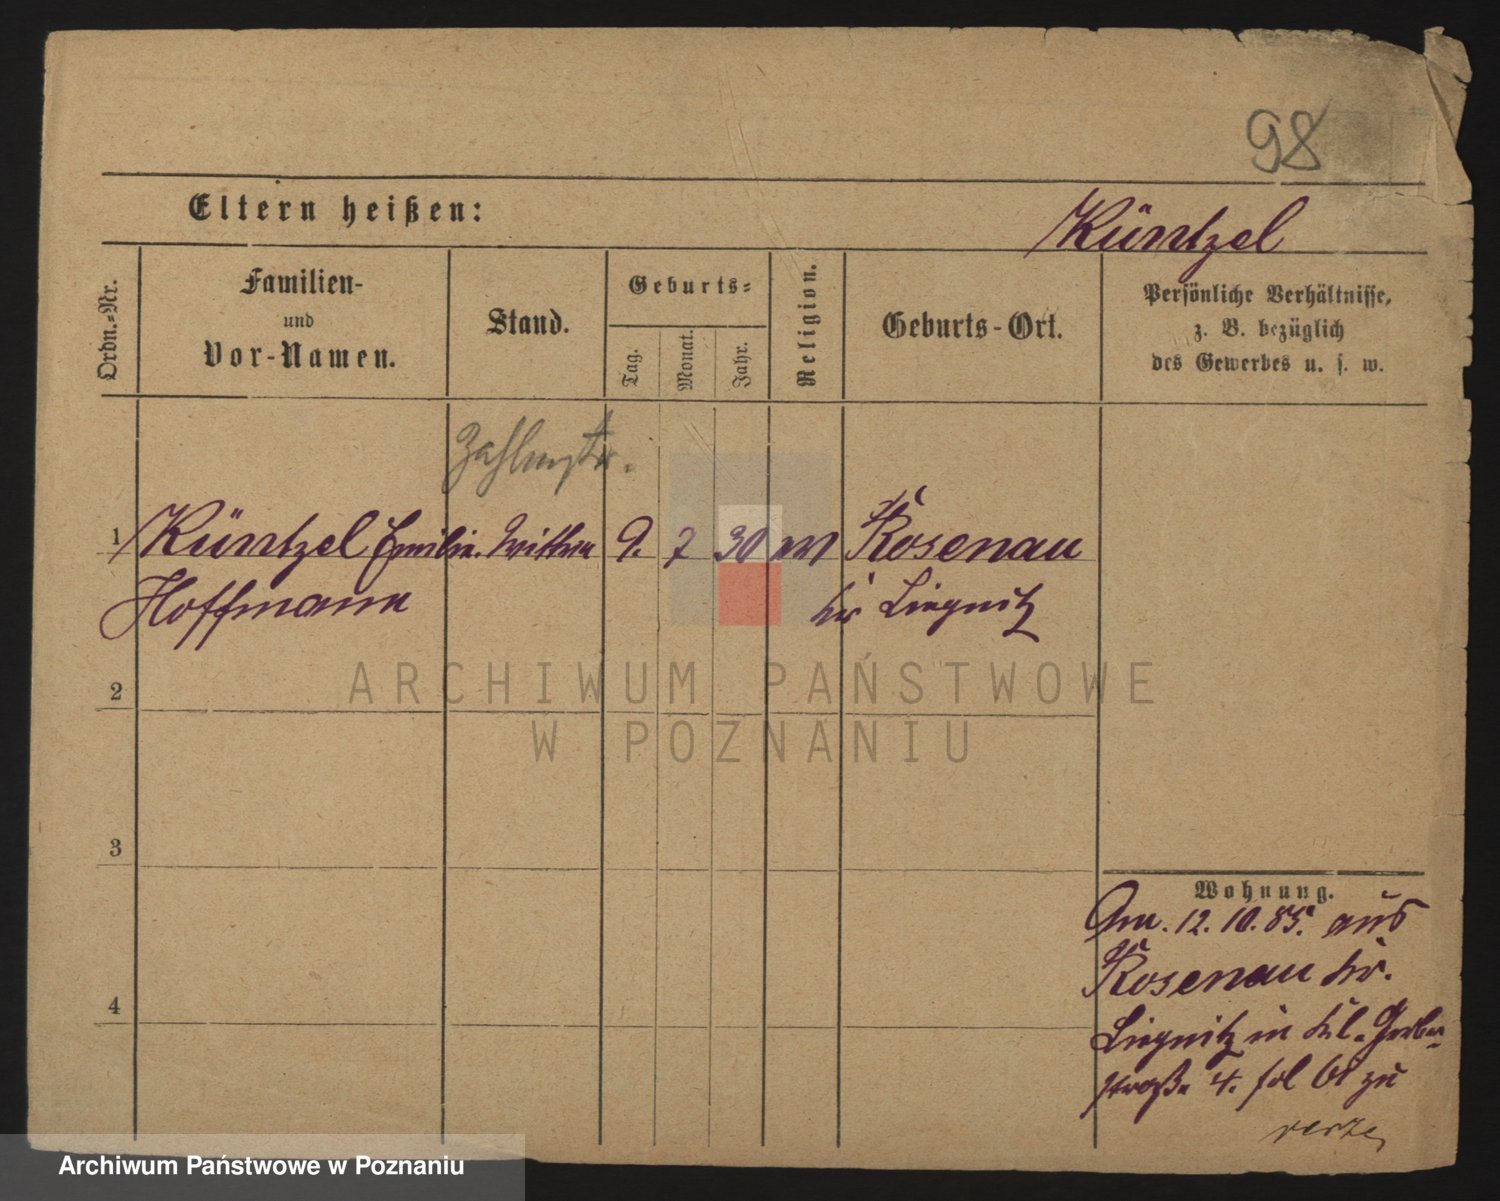 98
Eltern heißen:
Küntzel
Ordn.-Nr.
Familien-
und
Vor-Namen.
Stand.
Geburts-
Tag.
Monat.
Jahr.
Religion.
Geburts-Ort.
Persönliche Verhältnisse,
z. B. bezüglich
des Gewerbes u. s. w.
1 Küntzel Emilie Wittwe 9. 7 30 ev Rosenau
Hoffmann Kr Liegnitz
2
3
4
Wohnung.
Am. 12. 10. 85. aus
Rosenau Kr.
Liegnitz in Kl. Gerber-
straße 4. fol 61 zu
ARCHIWUM PAŃSTWOWE
W POZNANIU
Archiwum Państwowe w Poznaniu